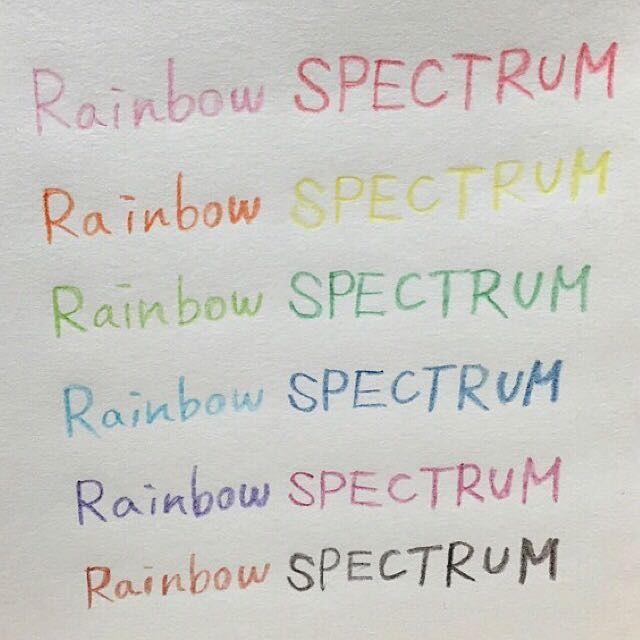 Rainbow SPECTRUM
Rainbow SPECTRUM
Rainbow SPECTRUM
Rainbow SPECTRUM
Rainbow SPECTRUM
Rainbow SPECTRUM